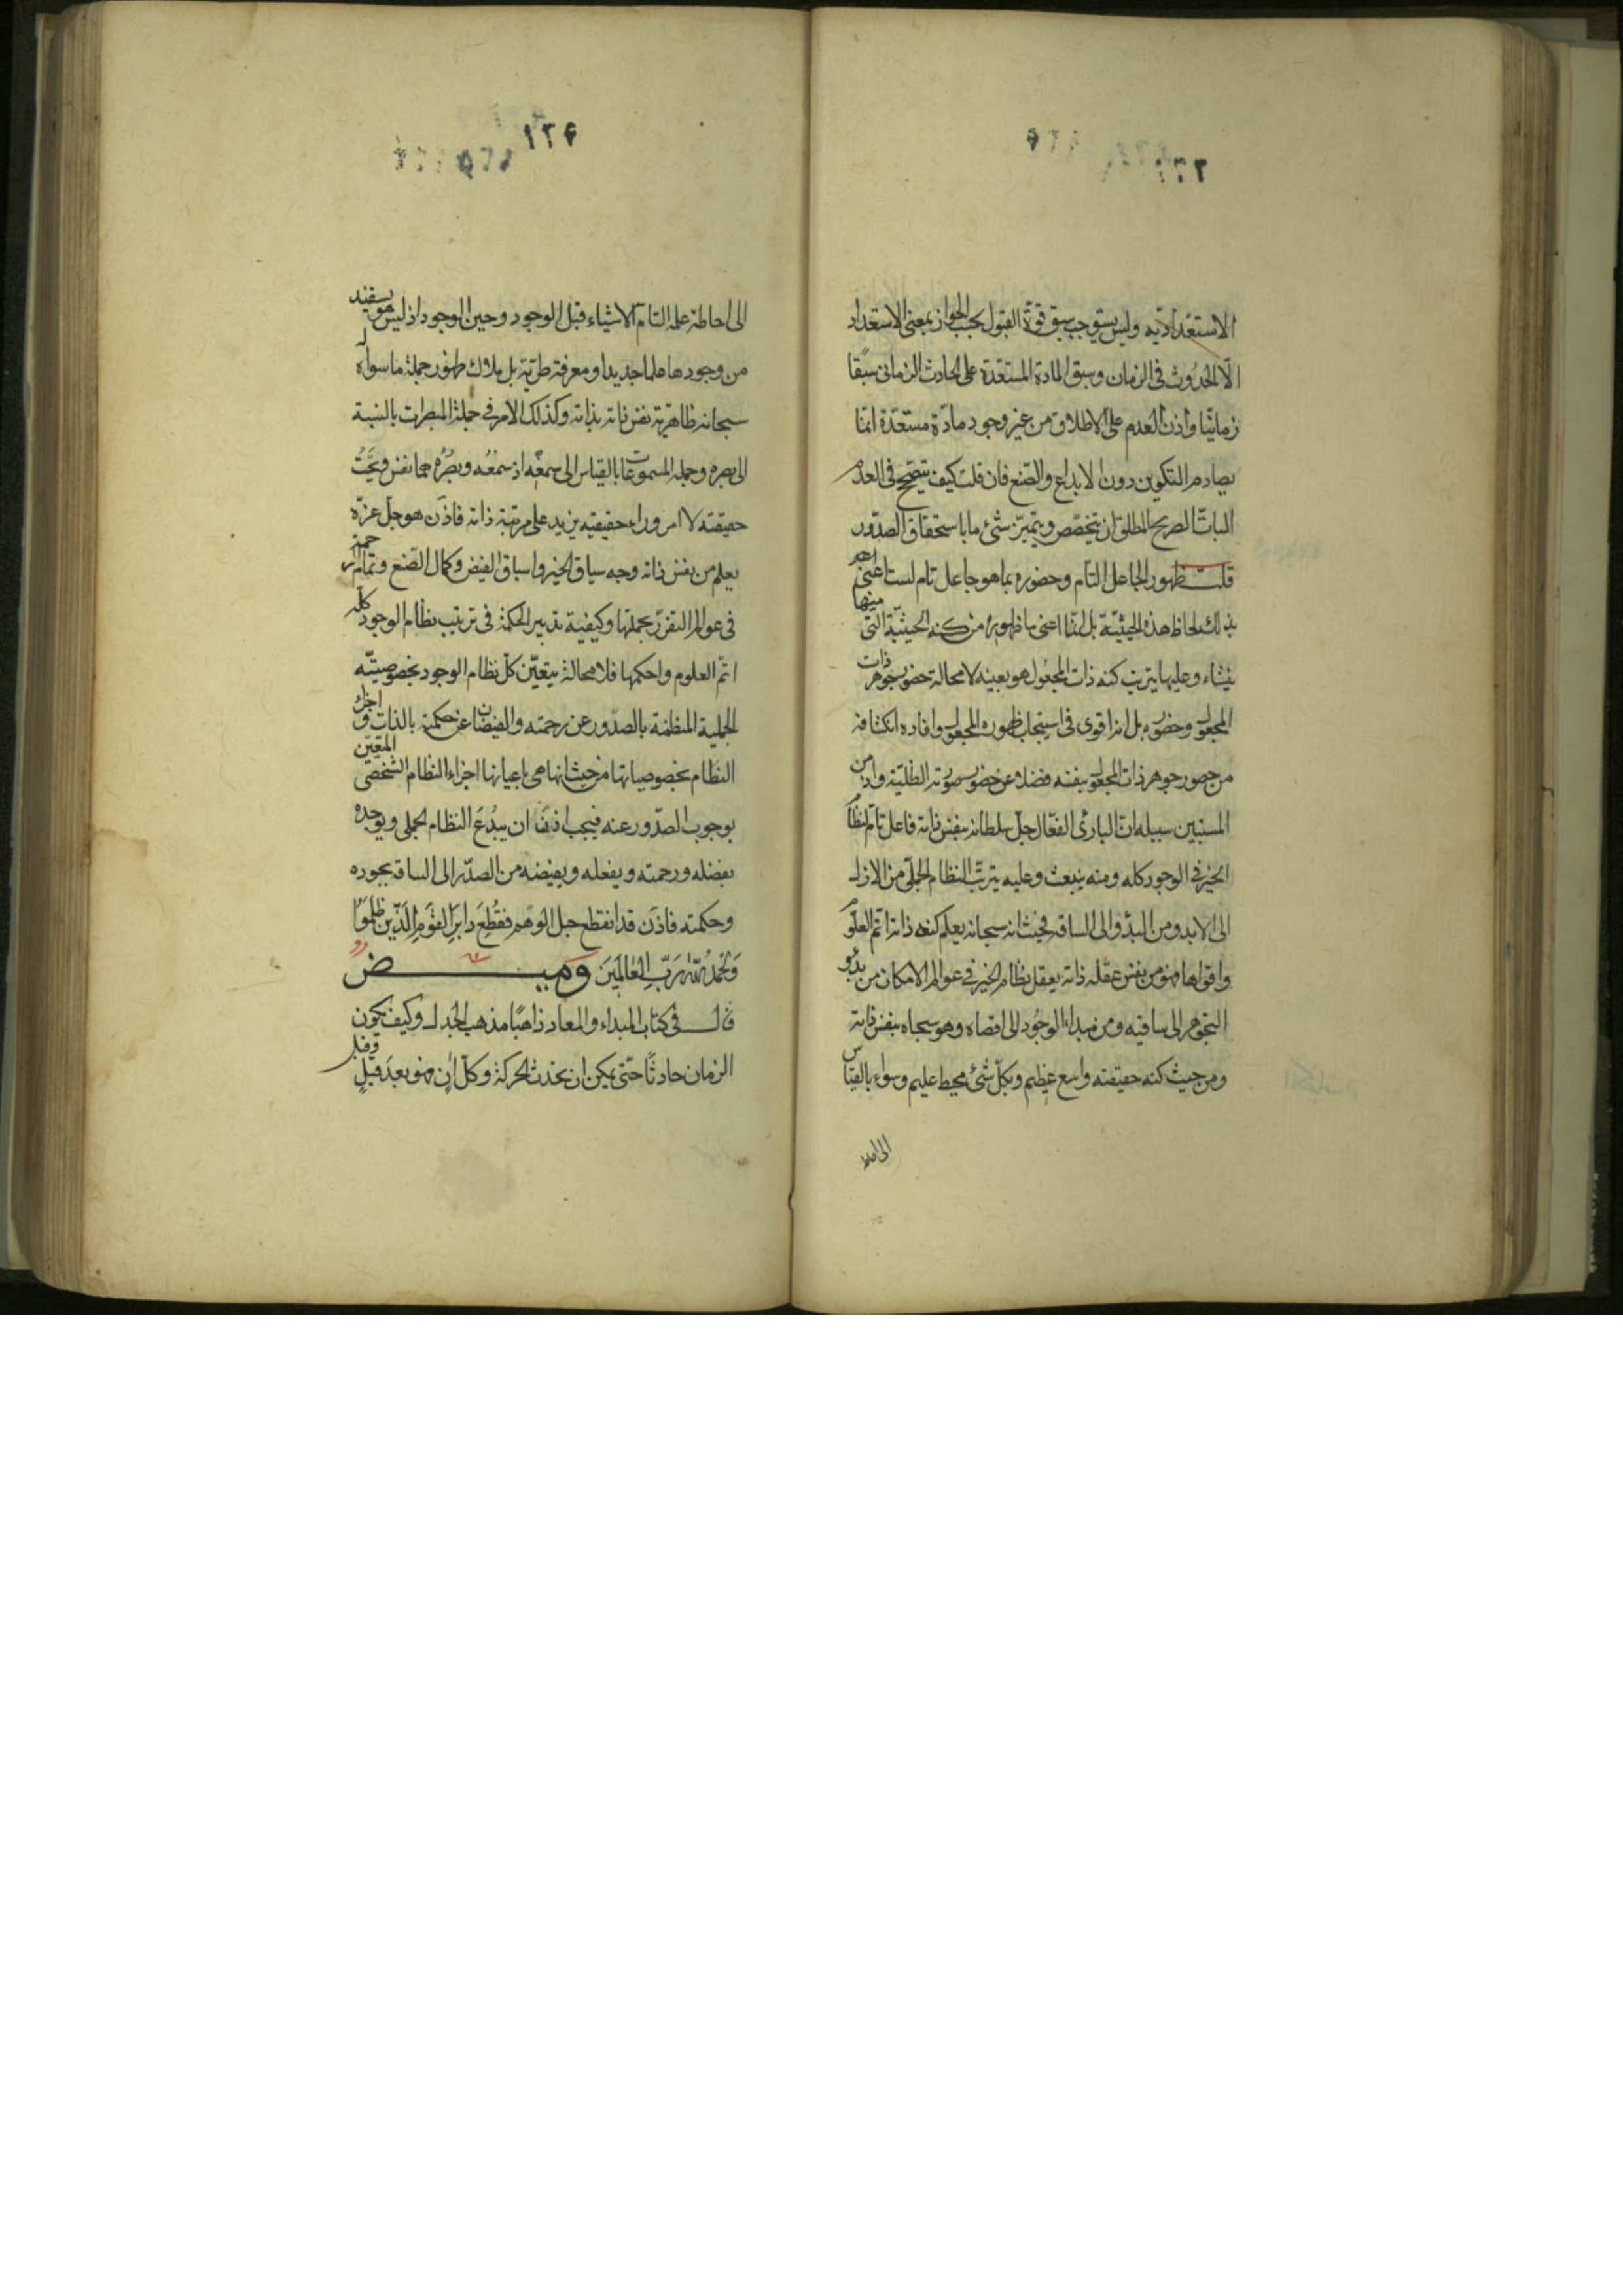 الاستعدادیه ولیس یستوجب سبق قوة القبول بحسب الجواز بمعنی الاستعداد
الا الحدوث فی الزمان وسبق المادة المستعدة علی الحادث الزمانی سبقا
زمانیا واذن العدم علی الاطلاق من غیر وجود مادة مستعدة انما
یصادم التکوین دون الابداع والصنع فان قلت کیف یتصحح فی العدم
البات الصریح المطلق ان یتخصص ویتمیز شئ ما باستحقاق الصدور
قلت ظهور الجاعل التام وحضوره بما هو جاعل تام لست اعنی
بذلک لحاظ هذه الحیثیة بل انما اعنی بها ظهوره من کنه الحیثیة التی منها
ینشاء وعلیها یترتب کنه ذات المجعول هو بعینه لا محالة حضور جوهر ذات
المجعول وحضوره بل انه اقوی فی استیجاب ظهور المجعول وافاده انکشافه
من حضور جوهر ذات المجعول بنفسه فضلا عن حضور صورته الظلیة واذ من
المستبین سبیله ان البارئ الفعال جل سلطانه بنفس ذاته فاعل تام لنظام
الخیر فی الوجود کله ومنه ینبعث وعلیه یترتب النظام الجملی من الازل
الی الابد ومن البدو الی الساقه فحیث انه سبحانه یعلم کنه ذاته اتم العلوم
واقواها فهو من نفس عقله ذاته یعقل نظام الخیر فی عوالم الامکان من بدو
التجوهر الی ساقته ومن مبداء الوجود الی اقصاه وهو سبحانه بنفس ذاته
ومن حیث کنه حقیقته واسع عظیم وبکل شئ محیط علیم وسواء بالقیاس
الی احاطة
١٢۴
الی احاطة علمه التام الاشیاء قبل الوجود وحین الوجود اذ لیس هو یستفید
من وجودها علما جدیدا ومعرفة طریة بل ملاک ظهور جملة ما سواه له
سبحانه ظاهریة نفس ذاته بذاته وکذلک الامر فی جملة المبصرات بالنسبة
الی بصره وجملة المسموعات بالقیاس الی سمعه اذ سمعه وبصره هما نفس بحت
حقیقته لا امر وراء حقیقته یزید علی مرتبة ذاته فاذن هو جل عزه
یعلم من نفس ذاته وجه سیاق الخیر واسباق الفیض وکمال الصنع وتمام الرحمة
فی عوالم التقرر بجملتها وکیفیة تدبیر الحکمة فی ترتیب نظام الوجود کله
اتم العلوم واحکمها فلا محالة یتعین کل نظام الوجود بخصوصیته
الجملیة المنظمة بالصدور عن رحمته والفیضان عن حکمته بالذات واجزاء
النظام بخصوصیاتها من حیث انها هی باعیانها اجزاء النظام الشخصی المتعین
بوجوب الصدور عنه فیجب اذن ان یبدع النظام الجملی ویوجده
بفضله ورحمته ویفعله ویفیضه من الصدر الی الساقة بجوده
وحکمته فاذن قد انقطع حبل الوهم فقطع دابر القوم الذین ظلموا
والحمد لله رب العالمین ومیض
قال فی کتاب المبداء والمعاد ذاهبا مذهب الجدل وکیف یکون
الزمان حادثا حتی یمکن ان تحدث الحرکة وکل ان فهو بعد قبل وقبل